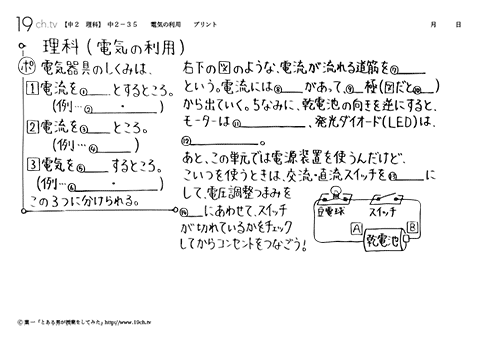 19ch.tv 【中2 理科】 中2-35 電気の利用 プリント 月 日
理科(電気の利用)
ポ 電気器具のしくみは、
1 電流を①___とするところ。
(例…②___・___)
2 電流を③___ところ。
(例…④___)
3 電気を⑤___するところ。
(例…⑥___・___)
この3つに分けられる。
右下の図のような、電流が流れる道筋を⑦___
という。電流には⑧___があって、⑨___極(図だと⑩___)
から出ていく。ちなみに、乾電池の向きを逆にすると、
モーターは⑪___、発光ダイオード(LED)は、
⑫___。
あと、この単元では電源装置を使うんだけど、
こいつを使うときは、交流・直流スイッチを⑬___に
して、電圧調整つまみを
⑭___にあわせて、スイッチ
が切れているかをチェック
してからコンセントをつなごう!
豆電球
スイッチ
A
B
乾電池
Ⓒ 葉一「とある男が授業をしてみた」http://www.19ch.tv